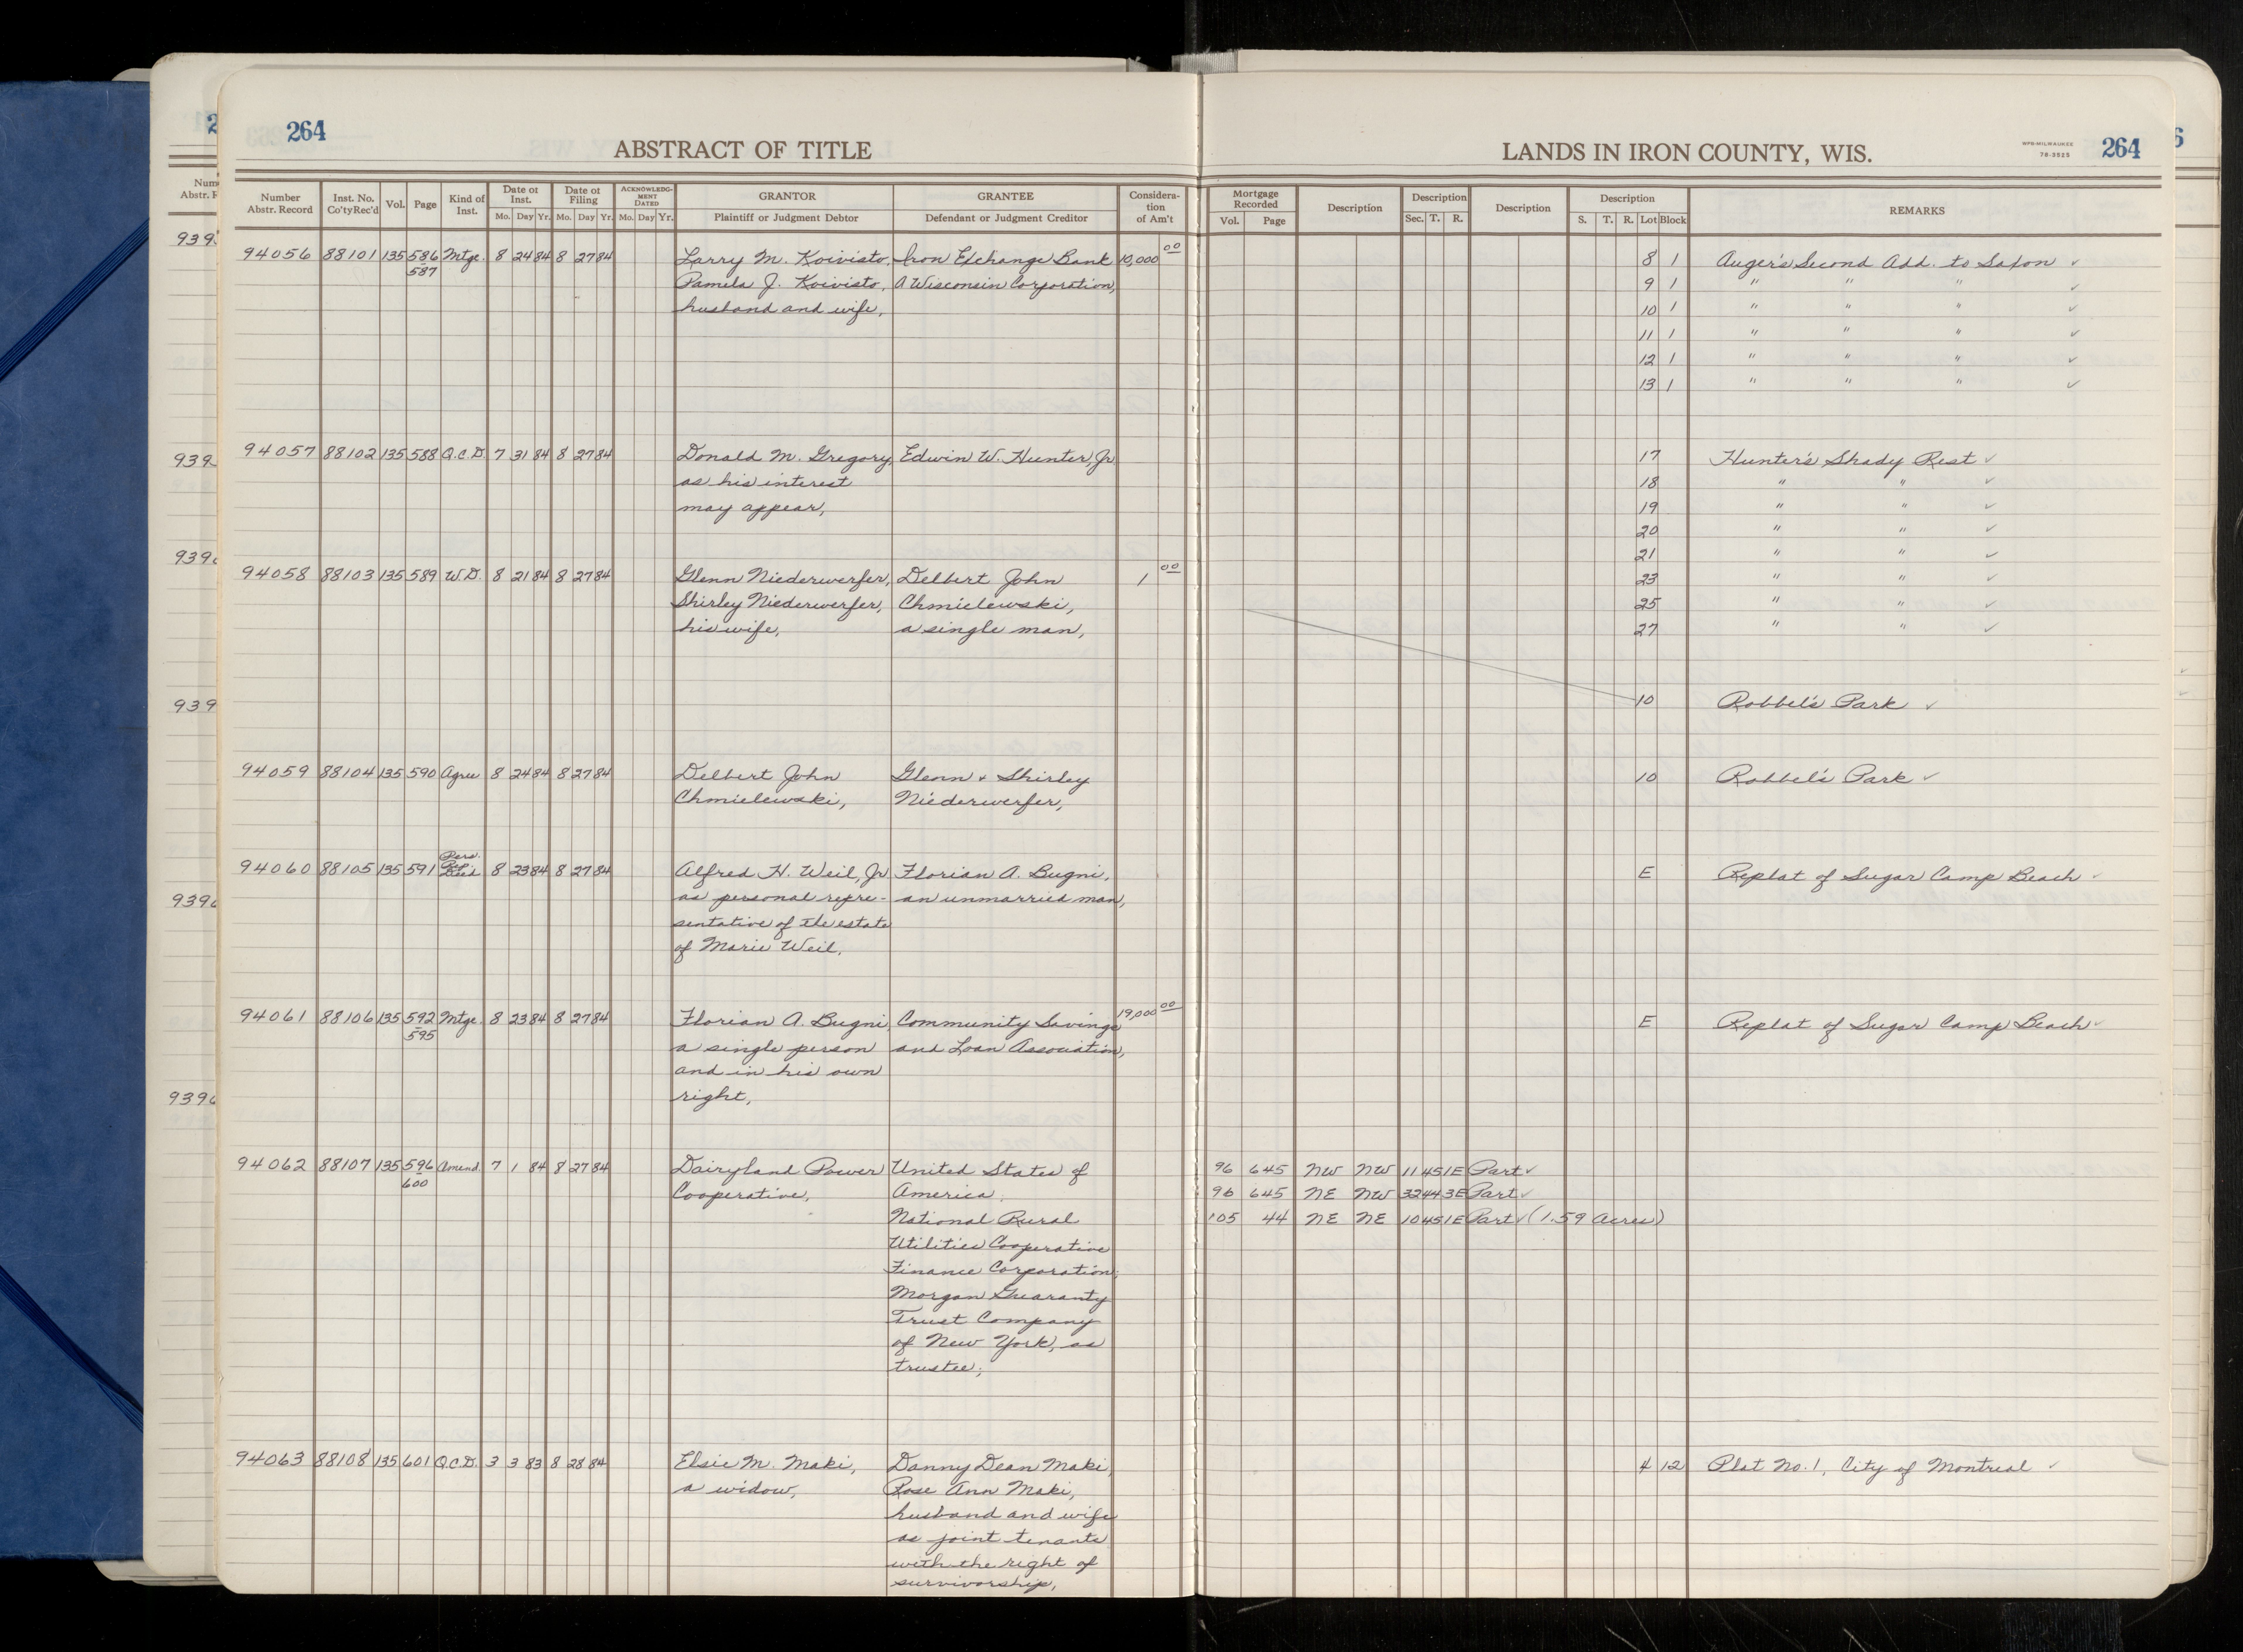 264
ABSTRACT OF TITLE
LANDS IN IRON COUNTY, WIS.
WPB-MILWAUKEE
78-3525
264
Number Abstr. Record Inst. No. Co'ty Rec'd Vol. Page Kind of Inst. Date of Inst. Mo. Day Yr. Date of Filing Mo. Day Yr. ACKNOWLEDGMENT DATED Mo. Day Yr. GRANTOR Plaintiff or Judgment Debtor GRANTEE Defendant or Judgment Creditor Consideration of Am't Mortgage Recorded Vol. Page Description Description Sec. T. R. Description Description S. T. R. Lot Block REMARKS
94056 88101 135 586 Mtge. 8 24 84 8 27 84 Larry M. Koivisto, Iron Exchange Bank 10,000 00 8 1 Auger's Second Add. to Saxon ✓
587 Pamela J. Koivisto, A Wisconsin Corporation, 9 1 " " " ✓
husband and wife, 10 1 " " " ✓
11 1 " " " ✓
12 1 " " " ✓
13 1 " " " ✓
94057 88102 135 588 Q.C.D. 7 31 84 8 27 84 Donald M. Gregory, Edwin W. Hunter, Jr 17 Hunter's Shady Rest ✓
as his interest 18 " " ✓
may appear, 19 " " ✓
20 " " ✓
21 " " ✓
94058 88103 135 589 W.D. 8 21 84 8 27 84 Glenn Niederwerfer, Delbert John 1 00 23 " " ✓
Shirley Niederwerfer, Chmielewski, 25 " " ✓
his wife, a single man, 27 " " ✓
10 Robbel's Park ✓
94059 88104 135 590 Agree 8 24 84 8 27 84 Delbert John Glenn + Shirley 10 Robbel's Park ✓
Chmielewski, Niederwerfer,
94060 88105 135 591 Pers. Rep. Deed 8 23 84 8 27 84 Alfred H. Weil, Jr Florian A. Bugni, E Replat of Sugar Camp Beach ✓
as personal repre- an unmarried man,
sentative of the estate
of Marie Weil,
94061 88106 135 592 Mtge. 8 23 84 8 27 84 Florian A. Bugni, Community Savings 19,000 00 E Replat of Sugar Camp Beach ✓
595 a single person and Loan Association,
and in his own
right,
94062 88107 135 596 Amend. 7 1 84 8 27 84 Dairyland Power United States of 96 645 NW NW 11 45 1E Part ✓
600 Cooperative, America, 96 645 NE NW 32 44 3E Part ✓
National Rural 105 44 NE NE 10 45 1E Part ✓ (1.59 Acres)
Utilities Cooperative
Finance Corporation;
Morgan Guaranty
Trust Company
of New York, as
trustee;
94063 88108 135 601 Q.C.D. 3 3 83 8 28 84 Elsie M. Maki, Danny Dean Maki, 4 12 Plat No. 1, City of Montreal ✓
a widow, Rose Ann Maki,
husband and wife
as joint tenants
with the right of
survivorship,